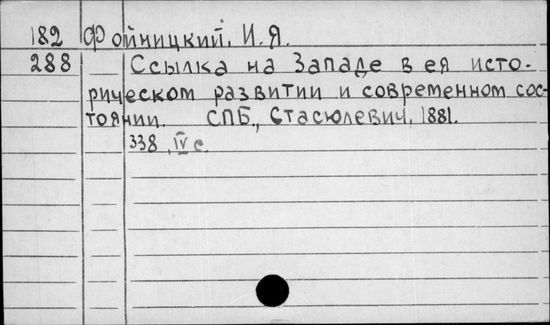 182 Фойницкий, И.Я.
288 Ссылка на Западе в ея исто-
рическом развитии и современном сос-
тоянии. СПБ., Стасюлевич, 1881.
338, IV с.